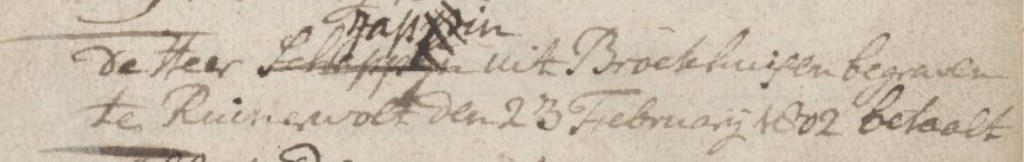 de Heer uit Broekhuisen begraven
te Ruinerwolt den 23 February 1802 betaalt